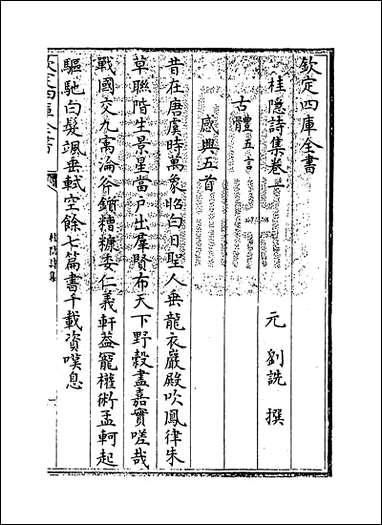 欽定四庫全書
桂隱詩集卷一
元 劉詵 撰
古體五言
感興五首
昔在唐虞時萬象昭白日聖人垂龍衣巖殿吹鳳律朱
草聯階生景星當戶出羣賢布天下野穀盡嘉實嗟哉
戰國交九㝢淪谷鎖糟糠委仁義軒葢寵權術孟軻起
驅馳白髮颯垂軾空餘七篇書千載資嘆息
欽定四庫全書
桂隱詩集
一